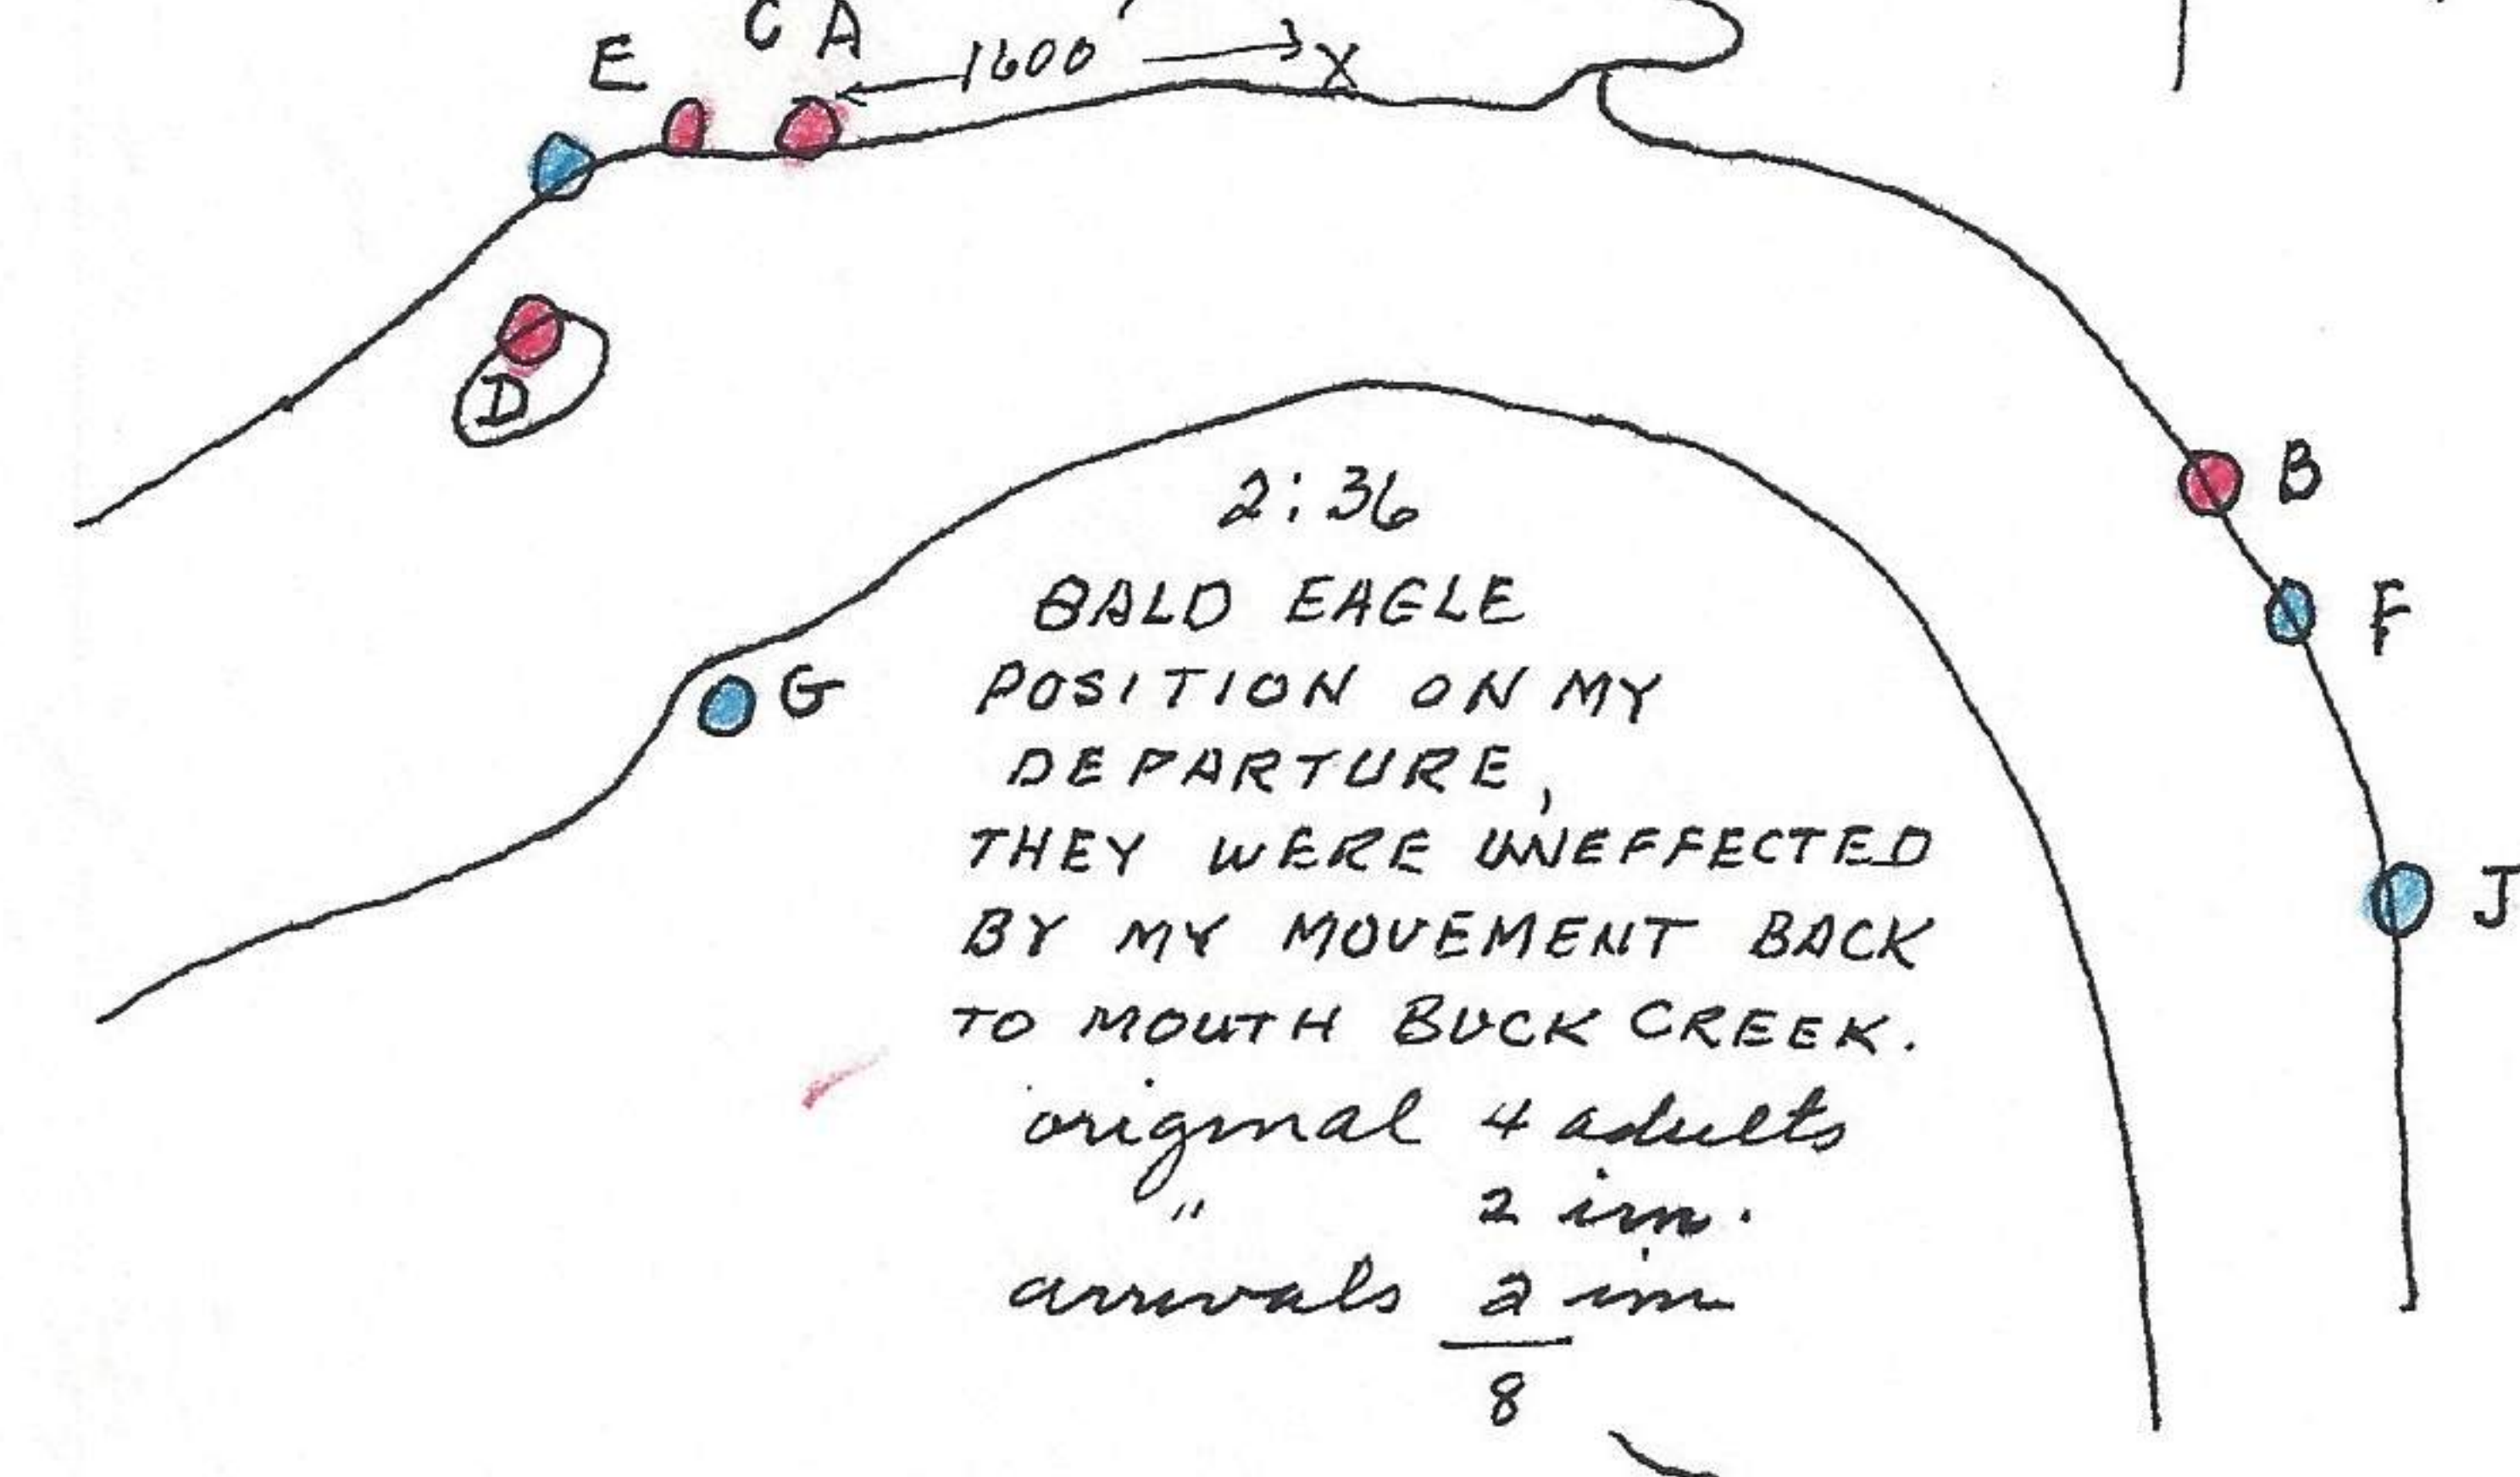 E C A
1600 X
D
B
F
G
J
2:36
BALD EAGLE
POSITION ON MY
DEPARTURE,
THEY WERE UNEFFECTED
BY MY MOVEMENT BACK
TO MOUTH BUCK CREEK.
original 4 adults
" 2 im.
arrivals 2 im
8